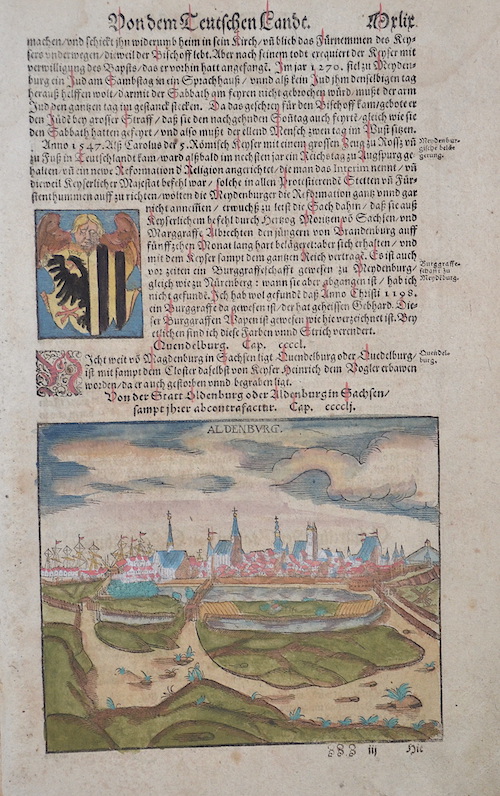 Von dem Teutschen Landt.
machen/vnd schickt jhn widerumb heim in sein Kirch/vñ blieb das Fürnemmen des Key-
sers vnderwegen/dieweil der Bischoff lebt. Aber nach seinem todt erquiert der Keyser mit
verwilligung des Bapsts/das er vorhin hatt angefangẽ. Im jar 1270. fiel zu Meyden-
burg ein Jud am Sambstag in ein Sprachhauß/ vnnd alß kein Jud jhm denselbigen tag
herauß helffen wolt/darmit der Sabbath am feyren nicht gebrochen würd/mußt der arm
Jud den gantzen tag im gestanck stecken. Da das geschrey für den Bischoff kam/gebote er
den Judẽ bey grosser Straff/daß sie den nachgehnden Soñtag auch feyretẽ/gleich wie sie
den Sabbath hatten gefeyrt/vnd also mußt der ellend Mensch zwen tag im Wust sitzen.
Anno 1547. Alß Carolus der 5. Römisch Keyser mit einem grossen Zeug zu Roßz vñ
zu Fuß in Teutschlandt kam/ward alßbald im nechsten jar ein Reichstag zu Augspurg ge-
halten/vñ ein newe Reformation d Religion angerichtet/die man das Interim nennt/vñ
dieweil Keyserlicher Majestat befehl war/ solche in allen Protestierendẽ Stetten vñ Für-
stenthummen auff zu richten/wolten die Meydenburger die Reformation gantz vnnd gar
nicht annemmen/
Keyserlichem befehl durch Hertzog Moritzen võ Sachsen/vnd
Marggraffe Albrechten den jüngern von Brandenburg auff
fünffzehen Monat lang hart belägeret:aber sich erhalten/ vnd
mit dem Keyser sampt dem gantzen Reich vertragẽ. Es ist auch
vor zeiten ein Burggraffeschafft gewesen zu Meydenburg/
gleich wie zu Nürnberg : wann sie aber abgangen ist / hab ich
nicht gefundẽ. Jch hab wol gefundẽ daß Anno Christi 1198.
ein Burggraffe da gewesen ist/der hat geheissen Gebhard. Die-
ser Burggraffen Wapen ist gewesen wie hie verzeichnet ist. Bey
etlichen find ich diese Farben vnnd Strich verendert.
Meydenbur-
gische belä-
gerung.
Burggraffe-
schafft zu
Meydeburg.
Quendelburg. Cap. ccccl.
Nicht weit võ Magdenburg in Sachsen ligt Quendelburg oder Quedelburg/
ist mit sampt dem Closter daselbst von Keyser Heinrich dem Vogler erbawen
worden/da er auch gestorben vnnd begraben ligt.
Quendel-
burg.
Von der Statt Oldenburg oder Aldenburg in Sachsen/
sampt jhrer abcontrafactur. Cap. ccccli.
ALDENBVRG.
iij Hie